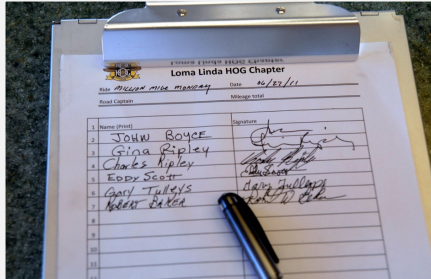 Loma Linda HOG Chapter
Ride MILLION MILE MONDAY Date 06/27/11
Road Captain Mileage total
1 Name (Print) Signature
2 JOHN BOYCE
3 Gina Ripley
4 Charles Ripley
5 EDDY SCOTT
6 Gary Tulleys
7 ROBERT BAKER
8
9
10
11